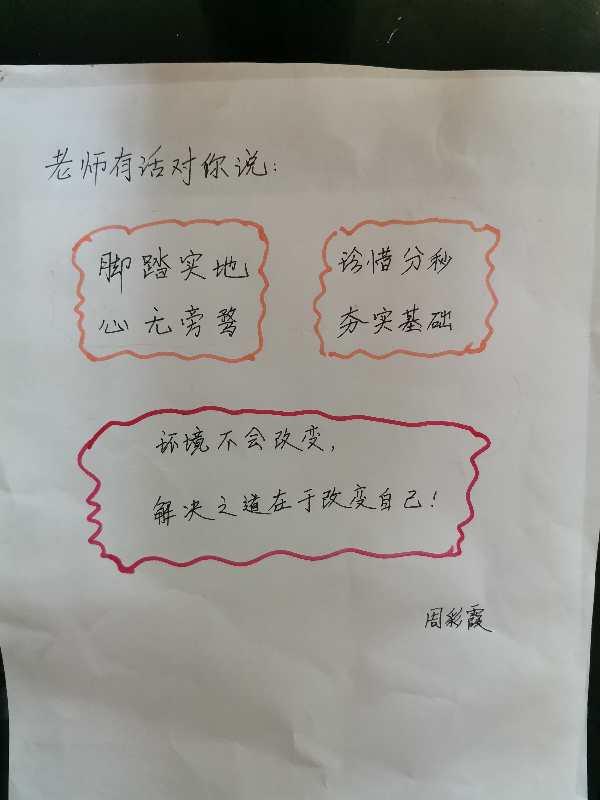 老师有话对你说:
脚踏实地
心无旁骛
珍惜分秒
夯实基础
环境不会改变,
解决之道在于改变自己!
周彩霞